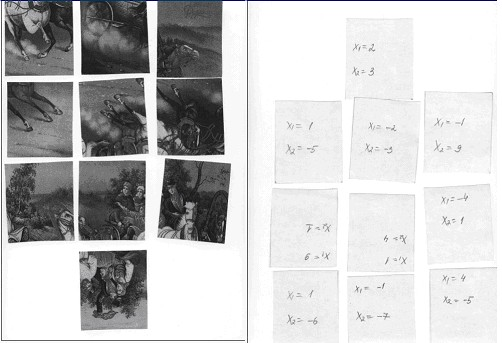 X₁= 2
X₂= 3
X₁= 1
X₂= -5
X₁= -2
X₂= -3
X₁= -1
X₂= 9
X₁= 1
X₂= 4
X₁= -4
X₂= 1
X₁= 1
X₂= -6
X₁= -1
X₂= -7
X₁= 4
X₂= -5